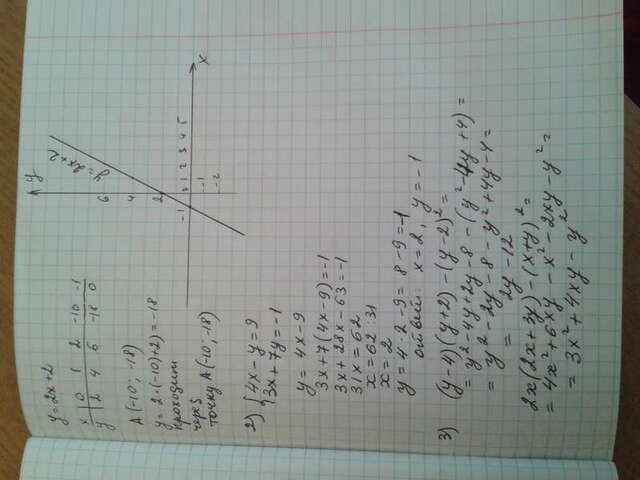 y=2x+2
x 0 1 2 -10 -1
y 2 4 6 -18 0
A(-10; -18)
y=2·(-10)+2)=-18
проходит
через
точку A(-10, -18)
y
x
y=2x+2
6
4
2
-1 1 2 3 4 5
-1
-2
2) {4x-y=9
3x+7y=-1
y=4x-9
3x+7(4x-9)=-1
3x+28x-63=-1
31x=62
x=62:31
x=2
y=4·2-9=8-9=-1
ответ: x=2, y=-1
3) (y-4)(y+2)-(y-2)²=
=y²-4y+2y-8-(y²-4y+4)=
=y²-2y-8-y²+4y-4=
= 2y-12
2x(2x+3y)-(x+y)²=
=4x²+6xy-x²-2xy-y²=
=3x²+4xy-y²